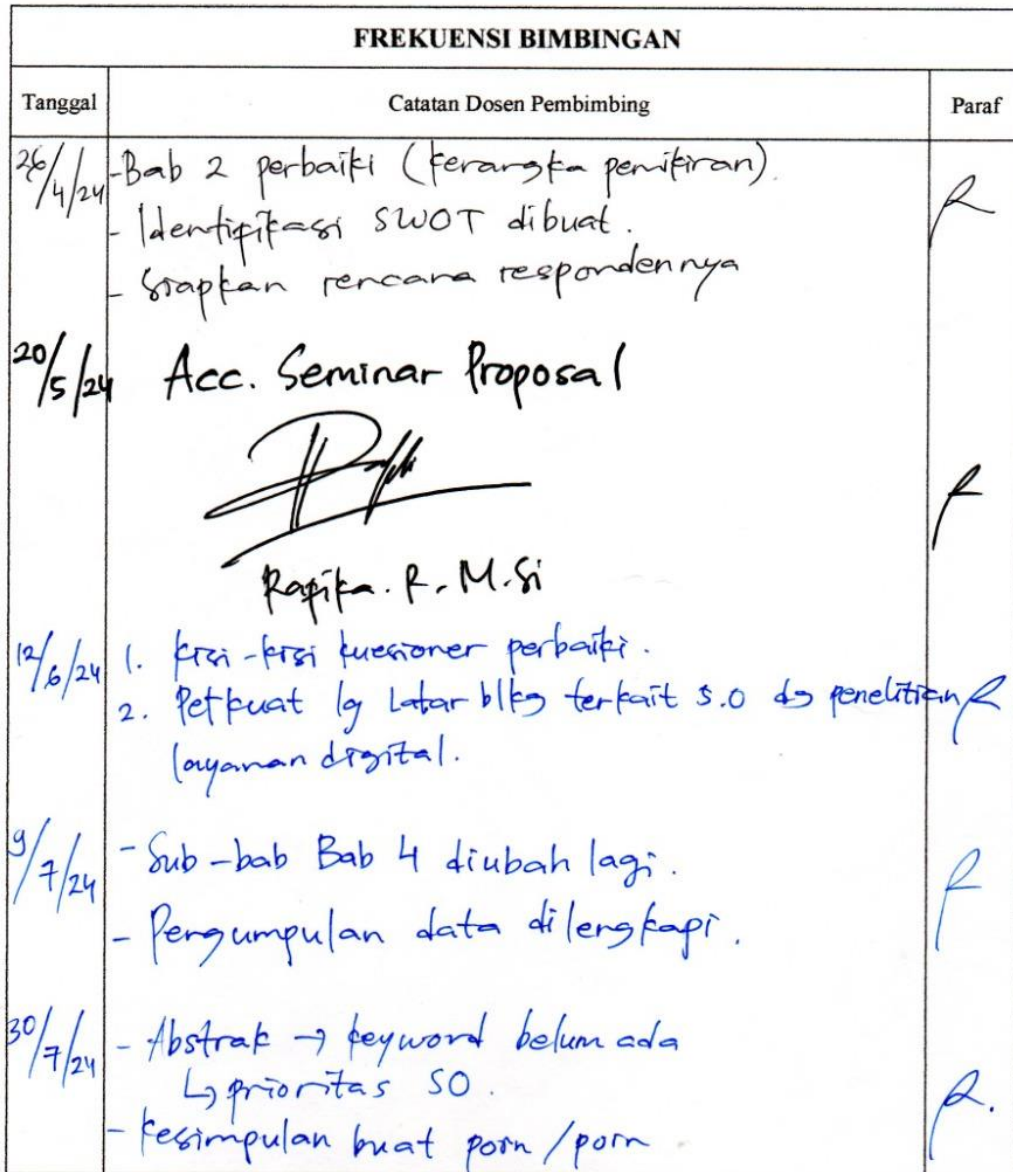 FREKUENSI BIMBINGAN
Tanggal Catatan Dosen Pembimbing Paraf
26/4/24 - Bab 2 perbaiki (kerangka pemikiran).
- Identifikasi SWOT dibuat.
- Siapkan rencana respondennya
20/5/24 Acc. Seminar Proposal
Rafika. R. M.Si
12/6/24 1. kisi-kisi kuesioner perbaiki.
2. Petkuat lg Latar blkg terkait 5.0 dg penelitian
layanan digital.
9/7/24 - Sub-bab Bab 4 diubah lagi.
- Pengumpulan data dilengkapi.
30/7/24 - Abstrak → keyword belum ada
↳ prioritas SO.
- kesimpulan buat poin/poin